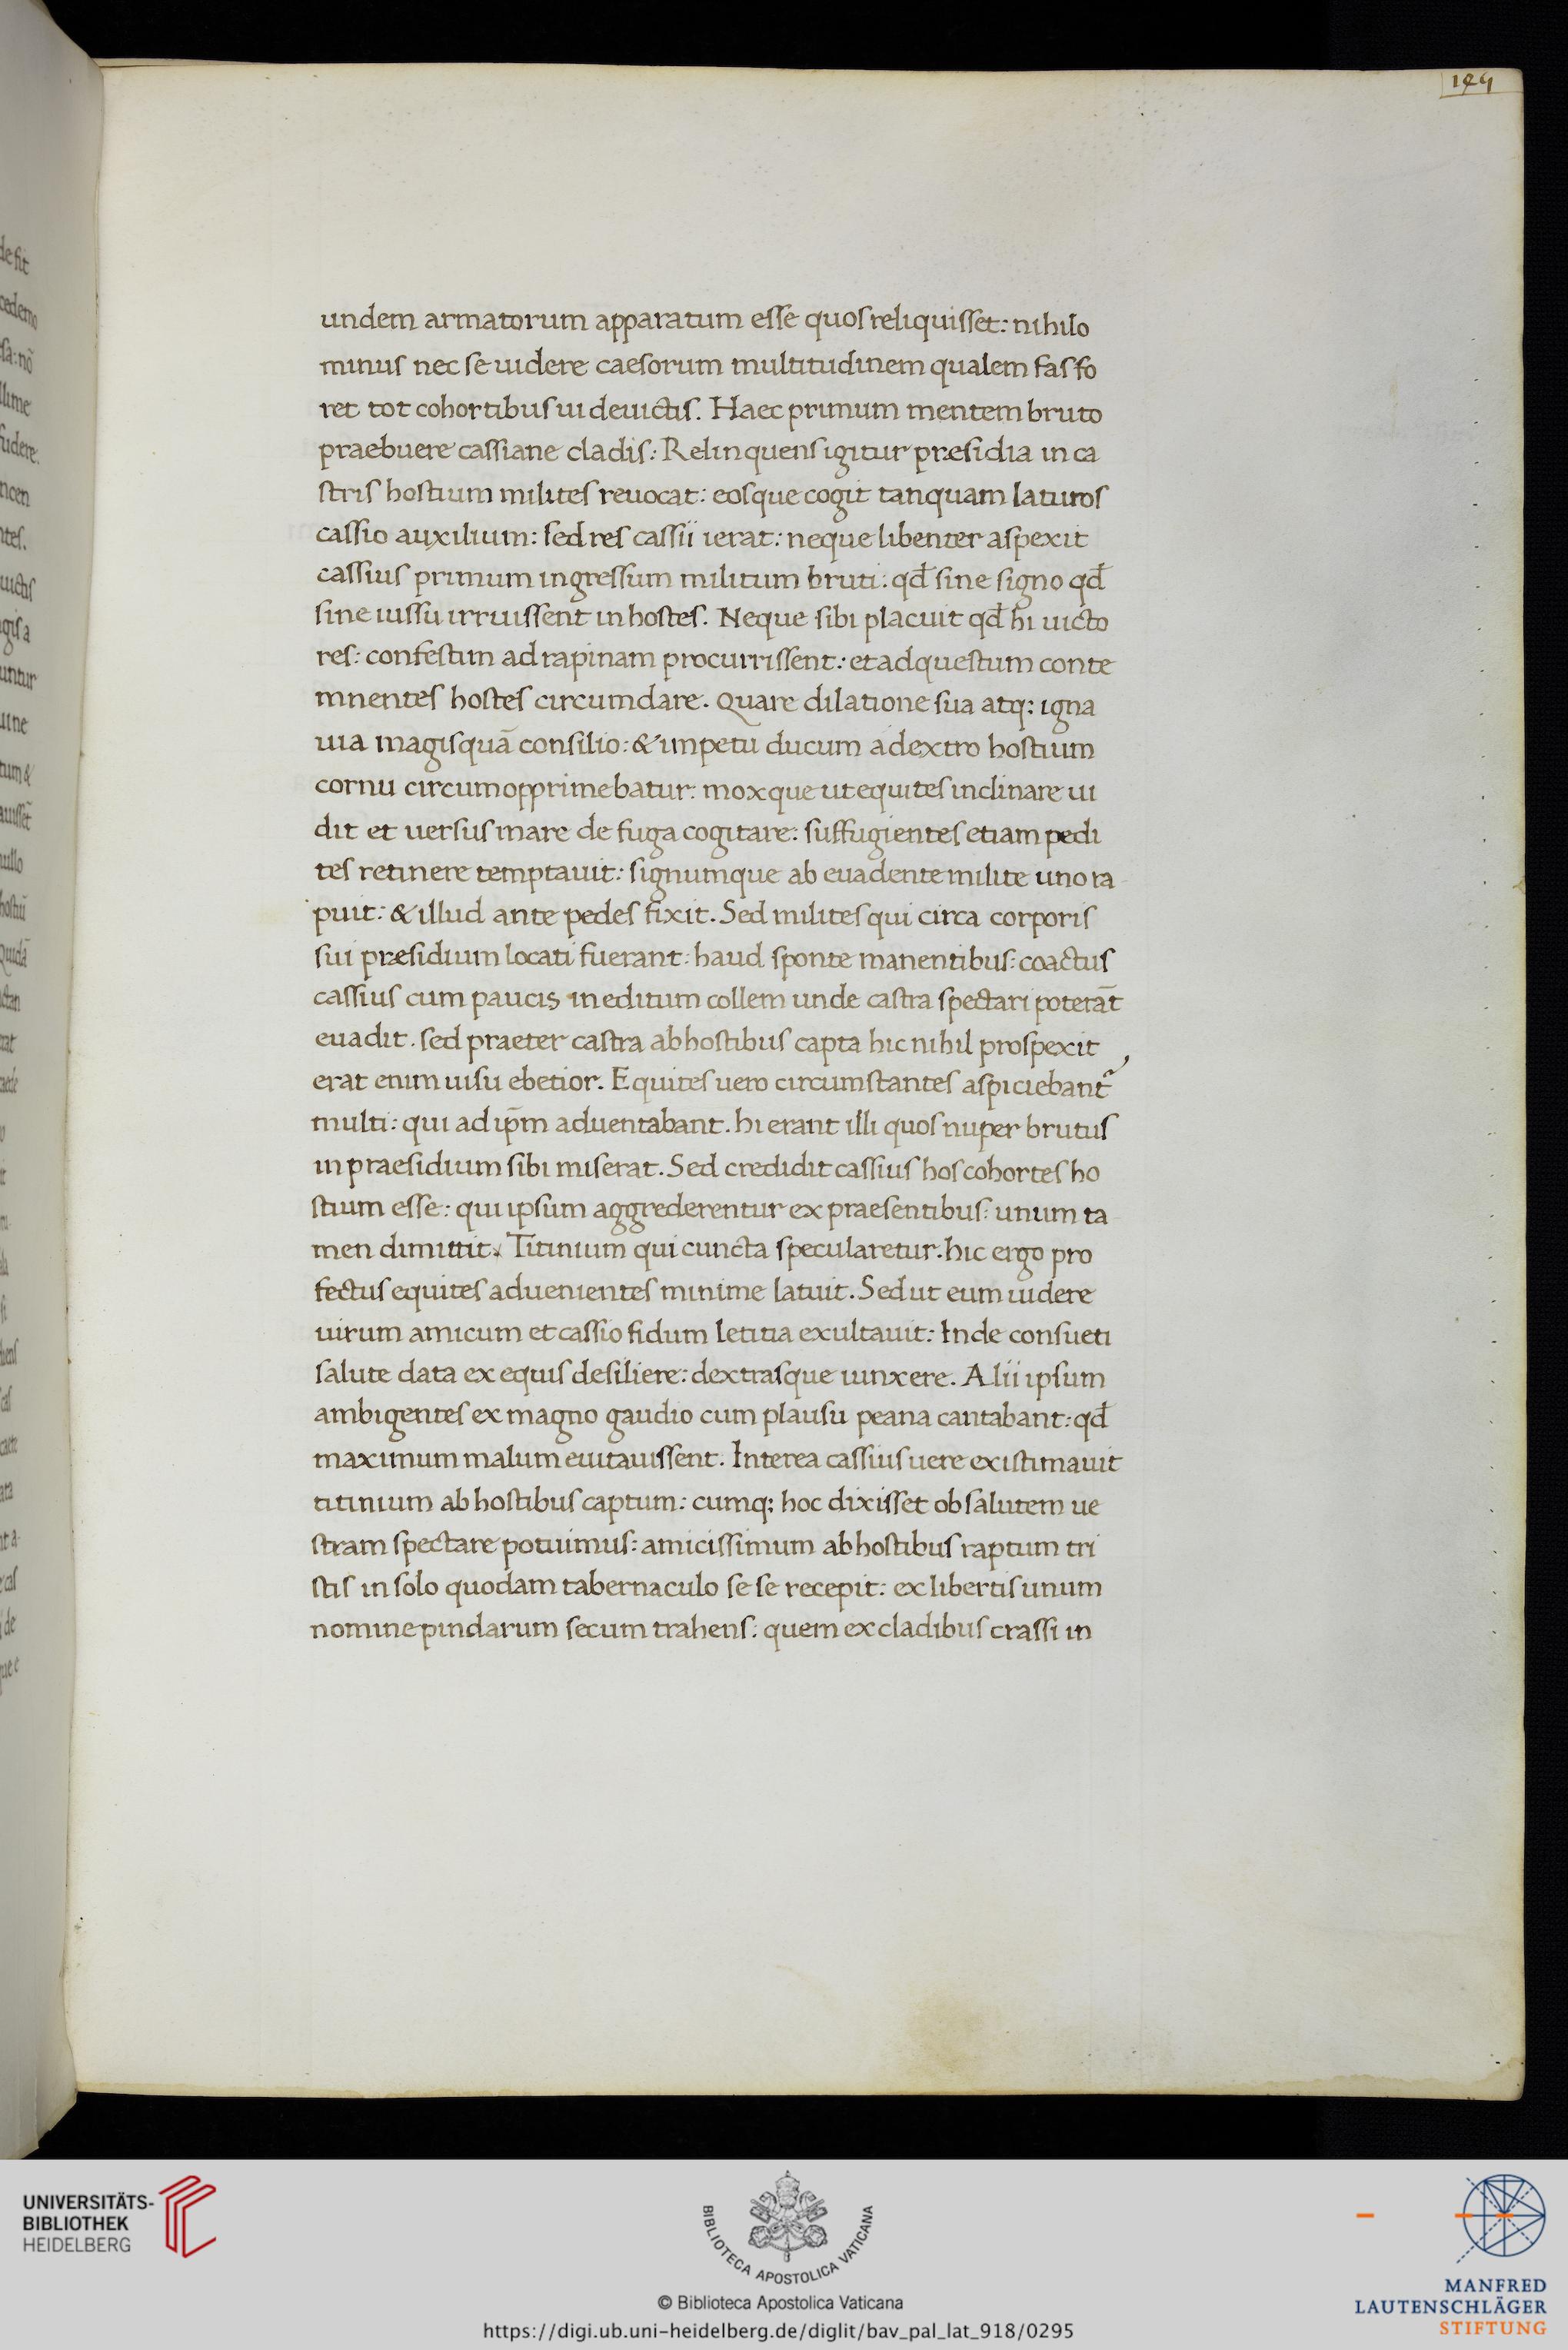 149
undem armatorum apparatum esse quos reliquisset: nihilo
minus nec se uidere caesorum multitudinem qualem fas fo
ret tot cohortibus ui deuictis. Haec primum mentem bruto
praebuere cassiane cladis: Relinquens igitur præsidia in ca
stris hostium milites reuocat: eosque cogit tanquam laturos
cassio auxilium: sed res cassii ierat: neque libenter aspexit
cassius primum ingressum militum bruti: qđ sine signo qđ
sine iussu irruissent in hostes. Neque sibi placuit qđ hi uicto
res: confestim ad rapinam procurrissent: et ad questum conte
mnentes hostes circumdare. Quare dilatione sua atq: igna
uia magis quā consilio: & impetu ducum a dextro hostium
cornu circum opprimebatur: moxque ut equites inclinare ui
dit et uersus mare de fuga cogitare: suffugientes etiam pedi
tes retinere temptauit: signumque ab euadente milite uno ra
puit: & illud ante pedes fixit. Sed milites qui circa corporis
sui præsidium locati fuerant: haud sponte manentibus: coactus
cassius cum paucis in editum collem unde castra spectari poterāt
euadit. sed praeter castra ab hostibus capta hic nihil prospexit
erat enim uisu ebetior. Equites uero circumstantes aspiciebant᷑
multi: qui ad ip̄m aduentabant. hi erant illi quos nuper brutus
in praesidium sibi miserat. Sed credidit cassius hos cohortes ho
stium esse: qui ipsum aggrederentur ex praesentibus: unum ta
men dimittit. Titinium qui cuncta specularetur. hic ergo pro
fectus equites aduenientes minime latuit. Sed ut eum uidere
uirum amicum et cassio fidum letitia exultauit: Inde consueti
salute data ex equis desiliere: dextrasque iunxere. Alii ipsum
ambigentes ex magno gaudio cum plausu peana cantabant: qđ
maximum malum euitauissent. Interea cassius uere existimauit
titinium ab hostibus captum: cumq; hoc dixisset ob salutem ue
stram spectare potuimus: amicissimum ab hostibus raptum tri
stis in solo quodam tabernaculo se se recepit: ex libertis unum
nomine pindarum secum trahens: quem ex cladibus crassi in
UNIVERSITÄTS-
BIBLIOTHEK
HEIDELBERG
BIBLIOTECA APOSTOLICA VATICANA
© Biblioteca Apostolica Vaticana
https://digi.ub.uni-heidelberg.de/diglit/bav_pal_lat_918/0295
MANFRED
LAUTENSCHLÄGER
STIFTUNG